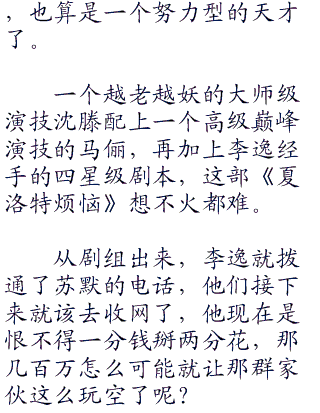 ，也算是一个努力型的天才
了。
一个越老越妖的大师级
演技沈滕配上一个高级巅峰
演技的马俪，再加上李逸经
手的四星级剧本，这部《夏
洛特烦恼》想不火都难。
从剧组出来，李逸就拨
通了苏默的电话，他们接下
来就该去收网了，他现在是
恨不得一分钱掰两分花，那
几百万怎么可能就让那群家
伙这么玩空了呢？